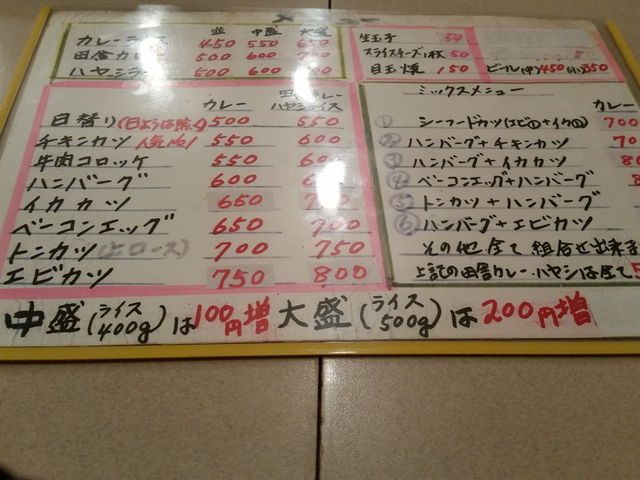 メニュー
並 中盛 大盛
カレーライス 450 550 650
田舎カレー 500 600
ハヤシライス 500 600
生玉子 50
スライスチーズ1枚 50
目玉焼 150
ビール(中)450(小)350
カレー 田舎カレー ハヤシライス
日替り(日ようは除く) 500 550
チキンカツ 人気No1 550 600
牛肉コロッケ 550 600
ハンバーグ 600
イカカツ 650 700
ベーコンエッグ 650 700
トンカツ(上ロース) 700 750
エビカツ 750 800
ミックスメニュー
カレー
① シーフードカツ(エビ①+イカ①) 700
② ハンバーグ+チキンカツ
③ ハンバーグ+イカカツ
④ ベーコンエッグ+ハンバーグ
⑤ トンカツ+ハンバーグ
⑥ ハンバーグ+エビカツ
その他全て組合せ出来ま
上記の田舎カレー.ハヤシは全て
中盛(ライス400g)は100円増 大盛(ライス500g)は200円増